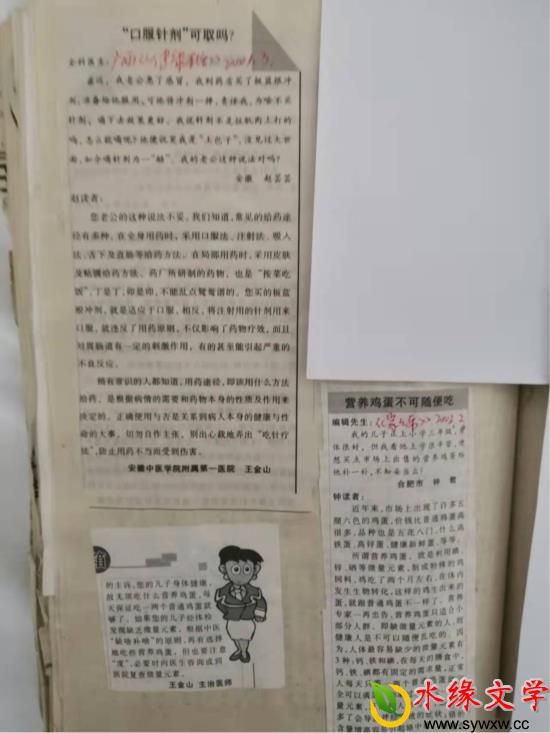 “口服针剂”可取吗?
全科医生:
最近,我老公患了感冒,我到药店买了板蓝根冲
剂,准备给他服用,可他将冲剂一摔,责怪我,为啥不买
针剂,
吗,怎么能喝呢?他便说笑我是“土包子”,没见过大世
面,如今喝针剂为一“酷”。我的老公这种说法对吗?
安徽 赵芸芸
赵读者:
您老公的这种说法不妥。我们知道,常见的给药途
径有多种。在全身用药时,采用口服法、注射法、吸入
法、舌下及直肠等给药方法。在局部用药时,采用皮肤
及粘膜给药方法。药厂所研制的药物,也是“按菜吃
饭”,丁是丁,卯是卯,不能乱点鸳鸯谱的。您买的板蓝
根冲剂,就是适应于口服,相反,将注射用的针剂用来
口服,就违反了用药原则,不仅影响了药物疗效,而且
对胃肠道有一定的刺激作用,有的甚至能引起严重的
不良反应。
稍有常识的人都知道,用药途径,即该用什么方法
给药,是根据病情的需要和药物本身的性质及作用来
决定的。正确使用与否是关系到病人本身的健康与性
命的大事。切勿自作主张,别出心裁地弄出“吃针疗
法”,防止用药不当而受到伤害。
安徽中医学院附属第一医院 王金山
营养鸡蛋不可随便吃
编辑先生:
我的儿子在上小学三年级,身
体很好,但我看他上学很辛苦,老
想买点市场上出售的营养鸡蛋给
他补一补,不知妥当么?
合肥市 钟
钟读者:
近年来,市场上出现了许多五
颜六色的鸡蛋,价钱比普通鸡蛋高
很多,品种也是五花八门,什么高
铁蛋、高锌蛋、健康新鲜蛋,等等。
所谓营养鸡蛋,就是利用碘、
锌、硒等微量元素,制成特殊的鸡
饲料,鸡吃了两个月左右,在体内
发生生物转化,这样的鸡生出来的
蛋,就跟普通鸡蛋不一样了。营养
专家一再忠告,营养鸡蛋只适合小
部分人群,即缺微量元素的人,而
健康人是不可以随便乱吃的。因
为,人体最容易缺少的微量元素有
3种:钙、铁和碘,在每天的膳食中,
钙、铁、碘都有固定的需求量,正常
人每天只
全可以满
量元素,
多了会导
含量增高
的主诉,您的儿子身体健康,
故无须吃什么营养鸡蛋,每
天保证吃一两个普通鸡蛋就
够了。如果您的儿子经体检
发现缺乏微量元素,根据中医
“缺啥补啥”的原则,再有选择
地吃些营养鸡蛋,但也要注意
“度”,必要时向医生咨询或到
医院复查微量元素。
王金山 主治医师
水缘文学
www.sywxw.cc